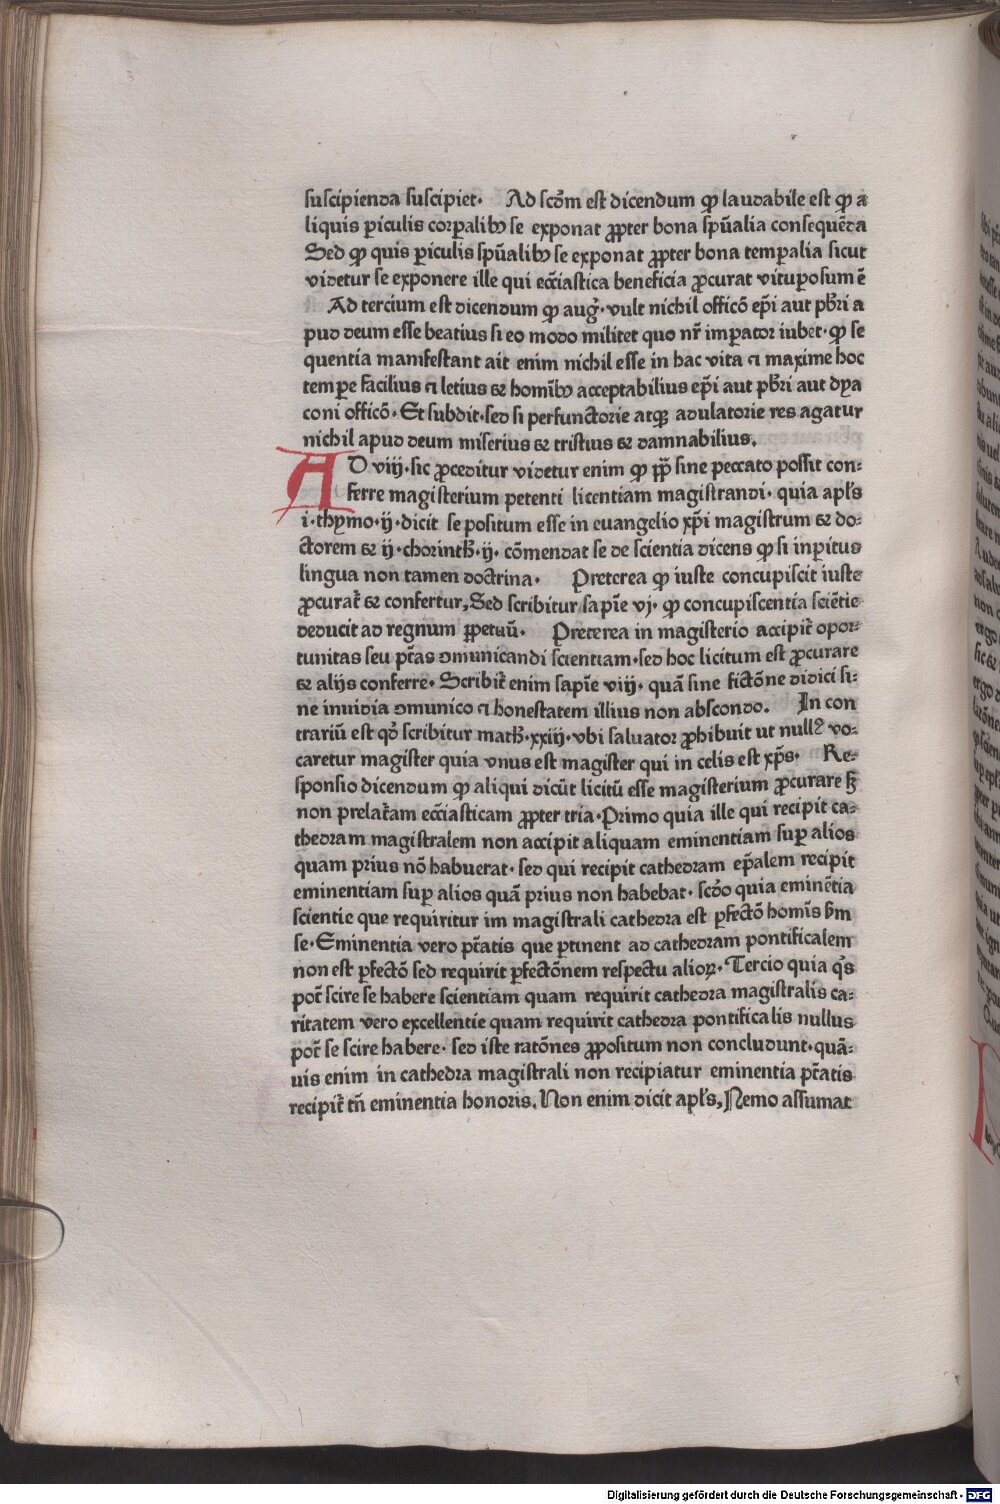 suscipienda suscipiet· Ad scōm est dicendum ꝙ laudabile est ꝙ a
liquis ꝑiculis corꝑalibꝰ se exponat ꝓpter bona spūalia consequēda
Sed ꝙ quis ꝑiculis spūalibꝰ se exponat ꝓpter bona temꝑalia sicut
videtur se exponere ille qui ecc̄iastica beneficia ꝓcurat vituꝑosum ē
Ad tercium est dicendum ꝙ aug̛· vult nichil officō ep̄i aut pb̄ri a
pud deum esse beatius si eo modo militet quo nr̄ imꝑator iubet· ꝙ se
quentia manifestant ait enim nichil esse in hac vita ⁊ maxime hoc
temꝑe facilius ⁊ letius & homībꝰ acceptabilius ep̄i aut pb̄ri aut dya
coni officō· Et subdit·sed si perfunctorie atqꝫ adulatorie res agatur
nichil apud deum miserius & tristius & damnabilius.
AD viij·sic ꝓceditur videtur enim ꝙ ꝓp̄ sine peccato possit con⸗
ferre magisterium petenti licentiam magistrandi· quia apl̄s
i·thymo·ij·dicit se positum esse in euangelio xp̄i magistrum & do⸗
ctorem & ij·chorinth̄·ij· cōmendat se de scientia dicens ꝙ si inꝑitus
lingua non tamen doctrina· Preterea ꝙ iuste concupiscit iuste
ꝓcurat̄ & confertur, Sed scribitur sapīe vj· ꝙ concupiscentia sciētie
deducit ad regnum ꝑpetuū· Preterea in magisterio accipit̄ opor⸗
tunitas seu pt̄as ꝯmunicandi scientiam·sed hoc licitum est ꝓcurare
& alijs conferre· Scribit̄ enim sapīe viij· quā sine fictōne didici si⸗
ne inuidia ꝯmunico ⁊ honestatem illius non abscondo. In con
trariū est qd̄ scribitur math̄·xxiij·vbi saluator ꝓhibuit ut nullꝰ vo⸗
caretur magister quia vnus est magister qui in celis est xp̄s· Re⸗
sponsio dicendum ꝙ aliqui dicūt licitū esse magisterium ꝓcurare sꝫ
non prelat̄am ecc̄iasticam ꝓpter tria·Primo quia ille qui recipit ca⸗
thedram magistralem non accipit aliquam eminentiam suꝑ alios
quam prius nō habuerat· sed qui recipit cathedram ep̄alem recipit
eminentiam suꝑ alios quā prius non habebat· scd̄o quia eminētia
scientie que requiritur im magistrali cathedra est ꝑfectō homīs s̄m
se·Eminentia vero pt̄atis que ꝑtinent ad cathedram pontificalem
non est ꝑfectō sed requirit ꝑfectōnem respectu alioꝝ· Tercio quia qͥs
pot̄ scire se habere scientiam quam requirit cathedra magistralis ca⸗
ritatem vero excellentie quam requirit cathedra pontificalis nullus
pot̄ se scire habere· sed iste ratōnes ꝓpositum non concludunt·quā⸗
uis enim in cathedra magistrali non recipiatur eminentia pt̄atis
recipit̄ tn̄ eminentia honoris. Non enim dicit apl̄s, Nemo assumat
Digitalisierung gefördert durch die Deutsche Forschungsgemeinschaft · DFG